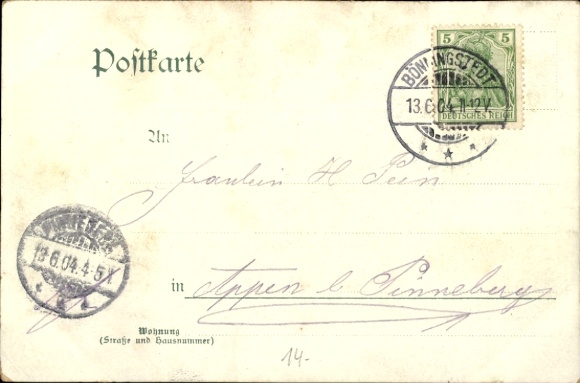 Postkarte
5 5
DEUTSCHES REICH
BÖNNINGSTEDT
13.6.04.11-12V.
An
Fräulein H Pein
13.6.04.4-5
in Appen b Pinneberg
Wohnung
(Straße und Hausnummer)
14-